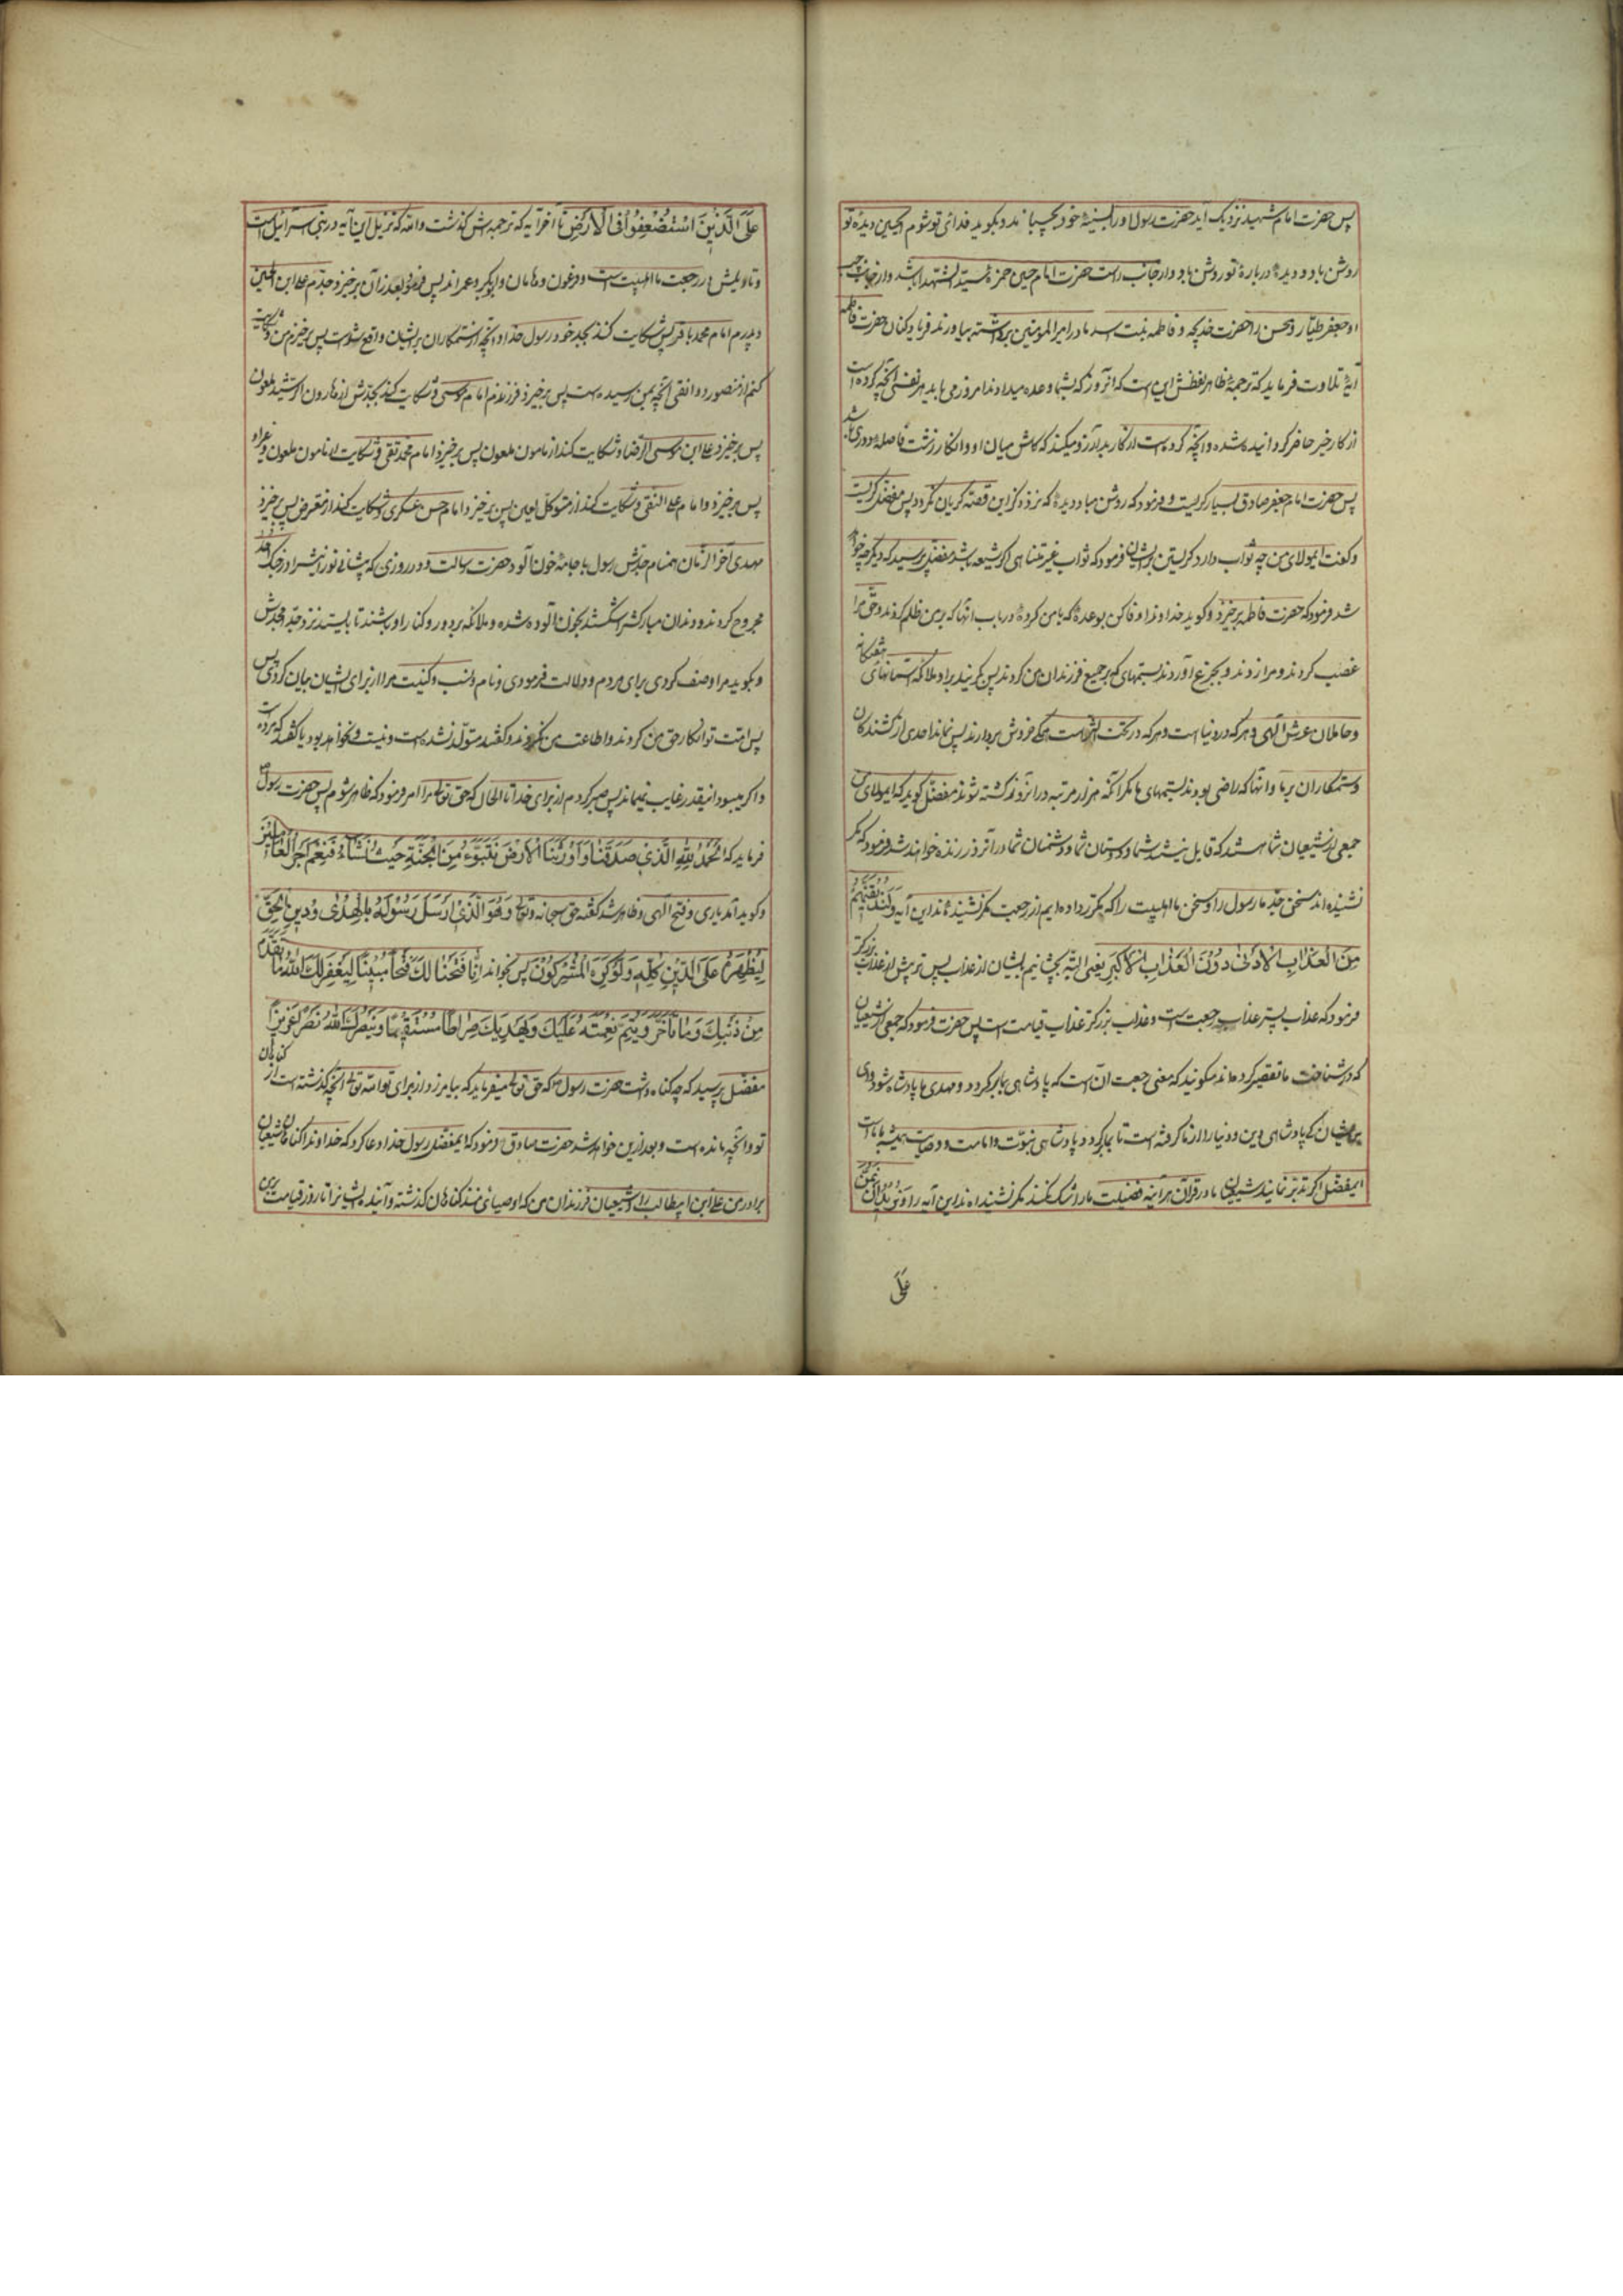 پس حضرت امام شهید نزدیک آید حضرت رسول او را بسینهٔ خود بچسپاند و بگوید فدای تو شوم ایحسین دیدهٔ تو
روشن باد و دیدهٔ من دربارهٔ تو روشن باد و از جانب راست حضرت امام حسین حمزه سید الشهدا باشد و از جانب چپ
او جعفر طیار و محسن را حضرت خدیجه و فاطمه بنت اسد مادر امیر المومنین برداشته بیاورند فریاد کنان حضرت فاطمه
آیهٔ تلاوت فرماید که ترجمهٔ ظاهر لفظش این است که آنروز که بشما وعده میدادند امروز می یابد هر نفسی آنچه کرده است
از کار خیر حاضر گردانیده شده و آنچه کرده است از کار بد آرزو میکند که کاش میان او و آنکار زشت فاصلهٔ دوری باشد
پس حضرت امام جعفر صادق بسیار گریست و فرمود که روشن مباد دیدهٔ که نزد ذکر این قصه گریان نگردد پس مفضل گریست
و گفت ایمولای من چه ثواب دارد گریستن بر ایشان فرمود که ثواب غیر متناهی اگر شیعه باشد مفضل پرسید که دیگر چه خواهد
شد فرمود که حضرت فاطمه برخیزد و گوید خداوندا وفا کن بوعدهٔ که بامن کردهٔ درباب آنها که برمن ظلم کردند و حق مرا
غصب کردند و مرا زدند و بجزع آوردند بستمهای که بر جمیع فرزندان من کردند پس بگریند براو ملائکه آسمانهای هفتگانه
و حاملان عرش الهی و هر که در دنیا است و هر که در تحت الثری است همگی خروش بردارند پس نماند احدی از کشندگان
و ستمکاران بر ما و آنها که راضی بودند بستمهای ما مگر آنکه هزار مرتبه در آنروز کشته شوند مفضل گوید که ایمولای من
جمعی از شیعیان شما هستند که قایل نیستند که شما و دوستان شما و دشمنان شما در آنروز زنده خواهند شد فرمود که مگر
نشنیده اند سخن جد ما رسول را و سخن ما اهلبیت را که مکرر داده ایم از رجعت مگر نشنیده اند این آیه ولنذیقنهم
من العذاب الادنی دون العذاب الاکبر یعنی البته بچشانیم بایشان از عذاب پس تر پیش از عذاب بزرگتر
فرمود که عذاب پستر عذاب رجعت است و عذاب بزرگتر عذاب قیامت است پس حضرت فرمود که جمعی از شیعیان
که در شناخت ما تقصیر کرده اند میگویند که معنی رجعت آن است که پادشاهی بما برگردد و مهدی ما پادشاه شود وای
بر ایشان کی پادشاهی دین و دنیا را از ما گرفته است تا بما برگردد پادشاهی نبوت و امامت و وصایت همیشه با ما است
ایمفضل اگر تدبر نمایند شیعیان ما در قرآن هر آینه در فضیلت ما شک نکنند مگر نشنیده اند این آیه را و نرید ان نمن
علی
علی الذین استضعفوا فی الارض تا آخر آیه که ترجمه اش گذشت والله که تنزیل این آیه در بنی اسرائیل است
و تاویلش در رجعت ما اهلبیت است و فرعون و هامان و ابوبکر و عمراند پس فرمود بعد از آن برخیزد جدم علی ابن الحسین
و پدرم امام محمد باقر پس شکایت کنند بجد خود رسول خدا و آنچه از ستمکاران بر ایشان واقع شده است پس برخیزم من و شکایت
کنم از منصور دوانقی آنچه بمن رسیده است پس برخیزد فرزندم امام موسی و شکایت کند بجدش از هارون الرشید ملعون
پس برخیزد علی ابن موسی الرضا و شکایت کند از مامون ملعون پس برخیزد امام محمد تقی و شکایت از مامون ملعون و غیراو
پس برخیزد و امام علی النقی و شکایت کند از متوکل لعین پس برخیزد امام حسن عسکری و شکایت کند از معتز پس برخیزد
مهدی آخر الزمان همنام جدش رسول با جامهٔ خون آلود حضرت رسالت و در روزی که پیشانی نورانیش را در جنگ احد
مجروح کردند و دندان مبارکش را شکستند بخون آلوده شده و ملائکه بر دور و کنار او باشند تا بایستد نزد جد امجدش
و بگوید مرا وصف کردی برای مردم و دلالت فرمودی و نام و نسب و کنیت مرا از برای ایشان بیان کردی پس
پس امت تو انکار حق من کردند و اطاعت من نکردند و گفتند متولد نشده است و نیست و نخواهد بود یا گفتند که مرده است
و اگر میبود اینقدر غایب نمیماند پس صبر کردم از برای خدا تا الحال که حق تعالی مرا امر فرمود که ظاهر شوم پس حضرت رسول
فرماید که الحمد لله الذی صدقنا و اورثنا الارض نتبوء من الجنة حیث نشاء فنعم اجر العاملین
و گوید آمد یاری و فتح الهی و ظاهر شد گفته حق سبحانه و تعالی و هو الذی ارسل رسوله بالهدی و دین الحق
لیظهره علی الدین کله و لو کره المشرکون پس بخواند انا فتحنا لک فتحا مبینا لیغفر لک الله ما تقدم
من ذنبک و ما تاخر و یتم نعمته علیک و یهدیک صراطا مستقیما و ینصرک الله نصرا عزیزا
مفضل پرسید که چه گناه داشت حضرت رسول که حق تعالی میفرماید که بیامرزد از برای تو الله تعالی آنچه گذشته است از گناهان
تو و آنچه مانده است و بعد ازین خواهد شد حضرت صادق فرمود که ایمفضل رسول خدا دعا کرد که خداوندا گناهان شیعیان
برادر من علی ابن ابیطالب را و شیعیان فرزندان من که اوصیای منند گناهان گذشته و آیندهٔ ایشانرا تا روز قیامت برمن